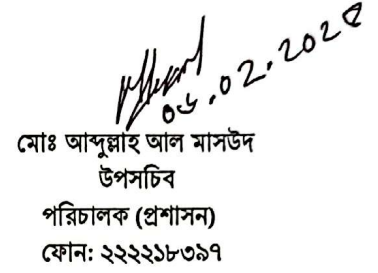 মোঃ আব্দুল্লাহ আল মাসউদ
উপসচিব
পরিচালক (প্রশাসন)
ফোন: ২২২২১৮৩৯৭